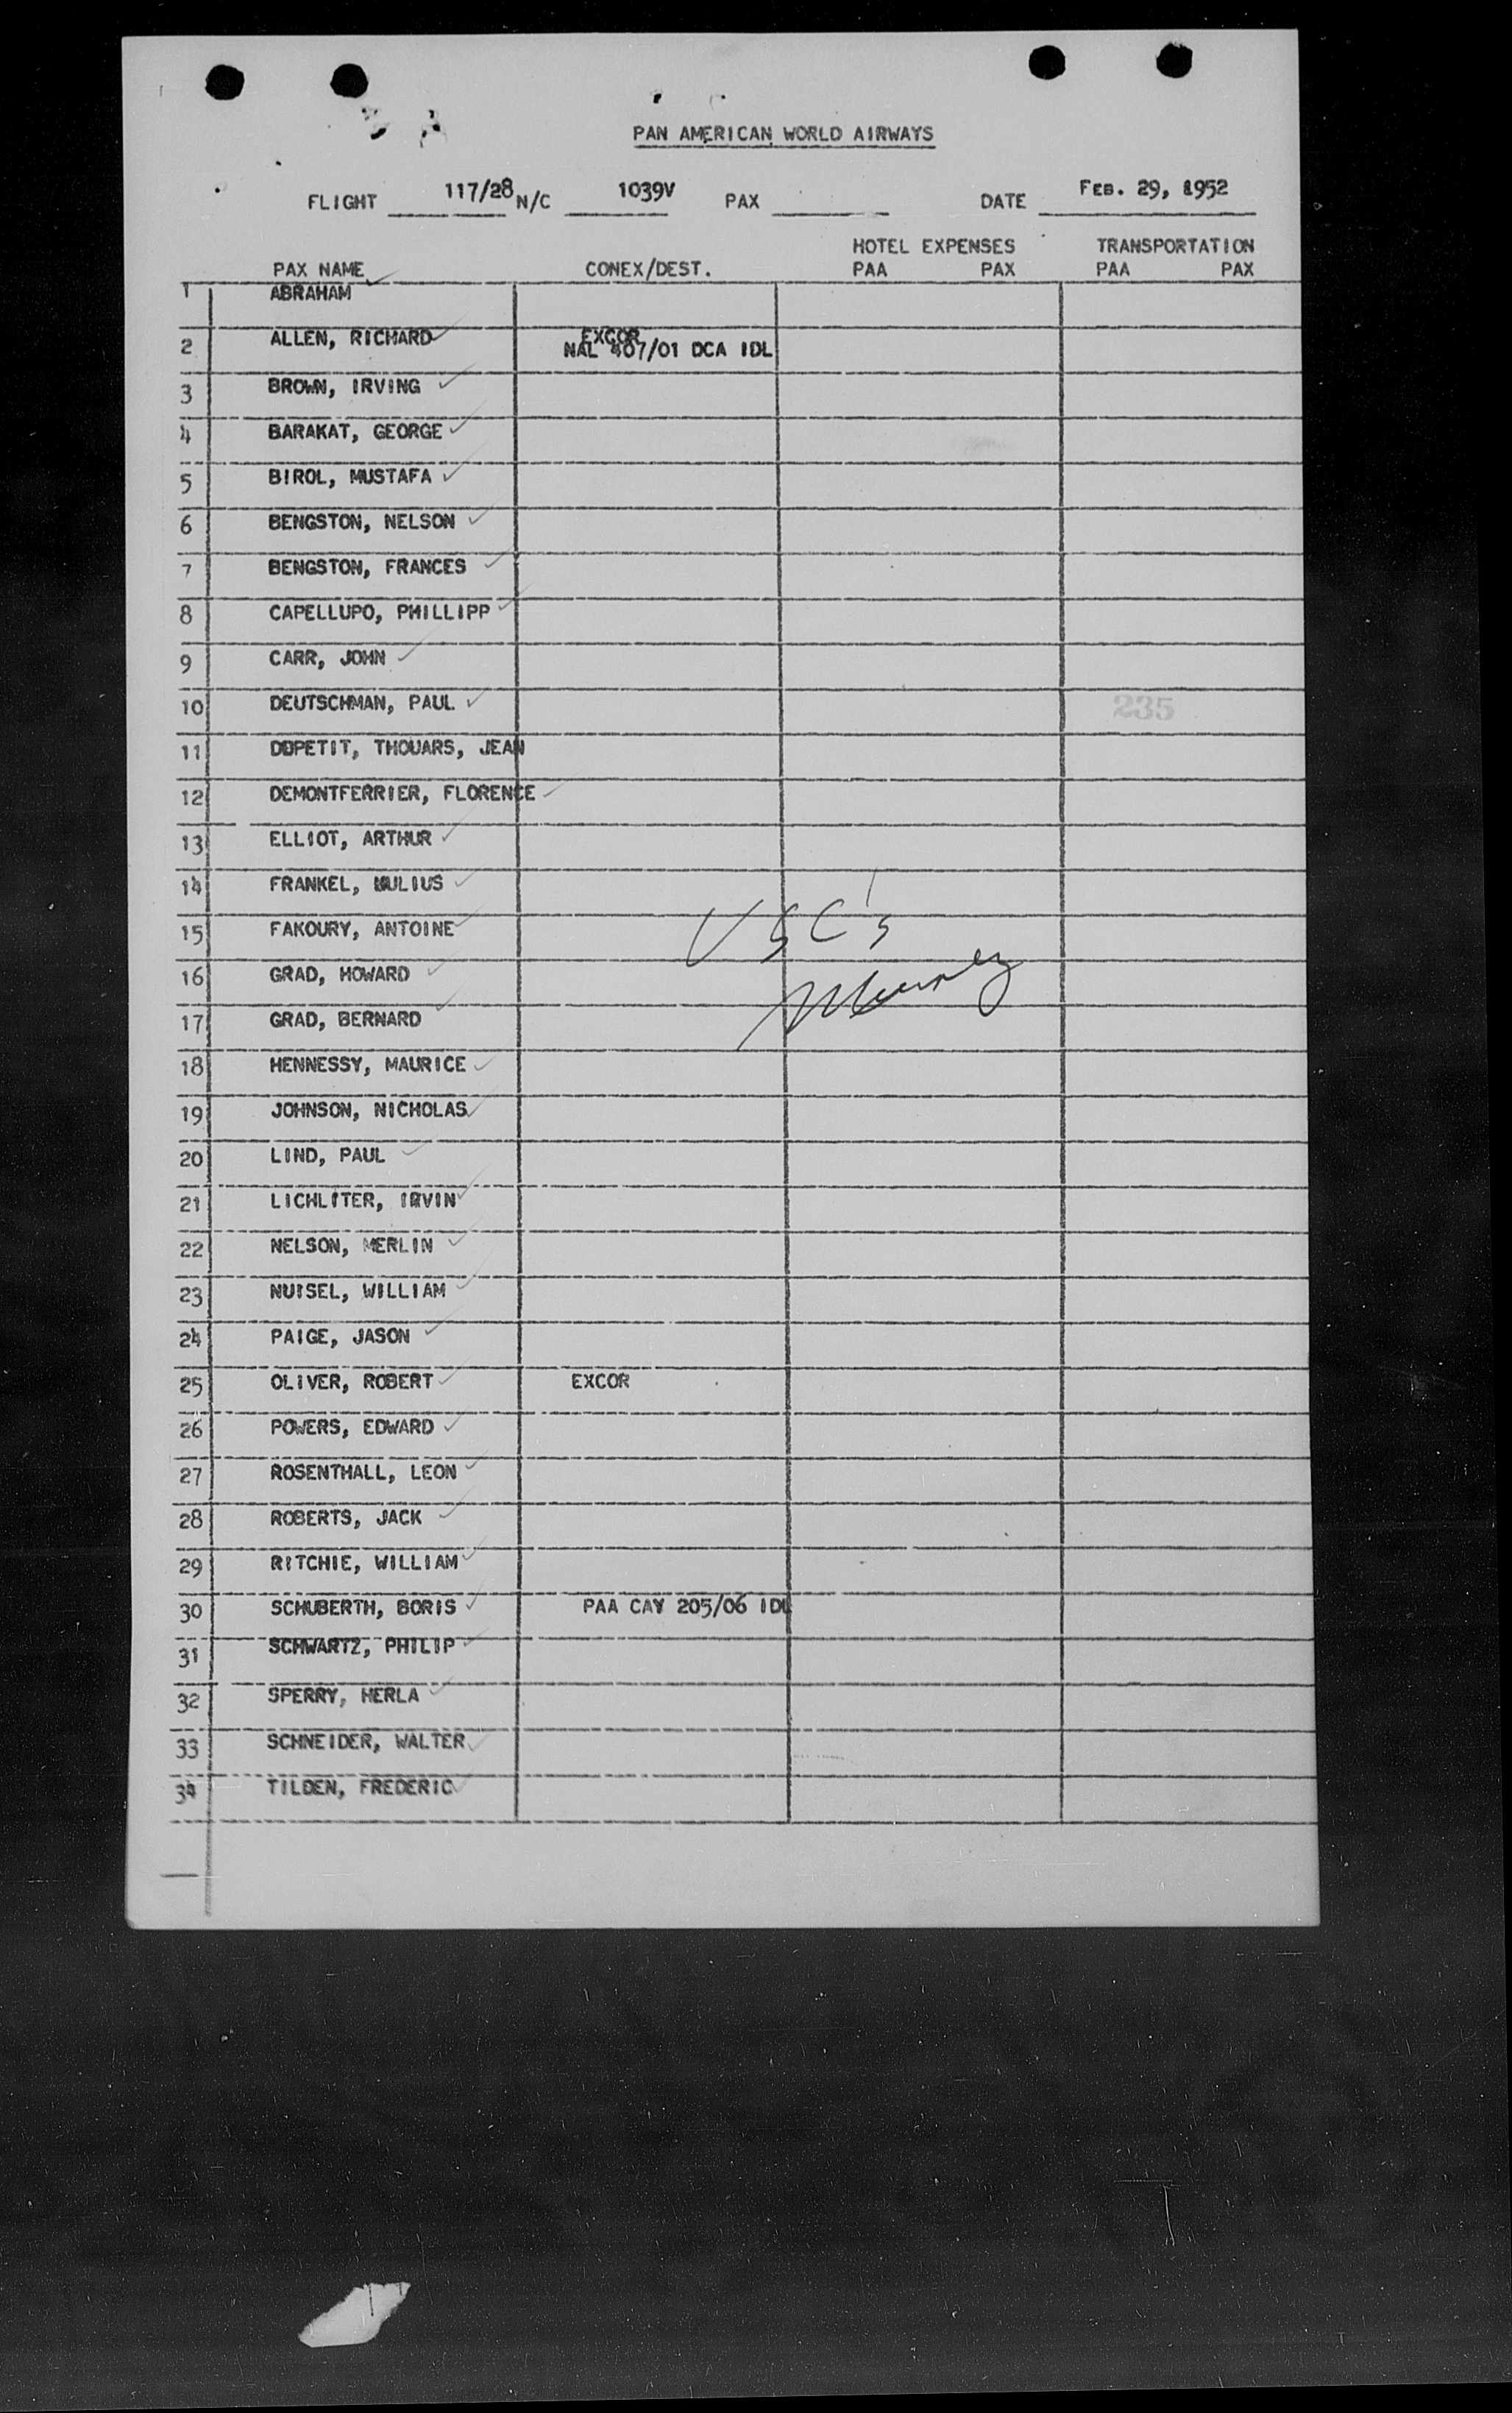 PAN AMERICAN WORLD AIRWAYS
FLIGHT 117/28 N/C 1039V PAX DATE FEB. 29, 1952
HOTEL EXPENSES TRANSPORTATION
PAX NAME CONEX/DEST. PAA PAX PAA PAX
1 ABRAHAM
2 ALLEN, RICHARD EXCOR
NAL 407/01 DCA IDL
3 BROWN, IRVING
4 BARAKAT, GEORGE
5 BIROL, MUSTAFA
6 BENGSTON, NELSON
7 BENGSTON, FRANCES
8 CAPELLUPO, PHILLIPP
9 CARR, JOHN
10 DEUTSCHMAN, PAUL 235
11 THOUARS, JEAN
12 DEMONTFERRIER, FLORENCE
13 ELLIOT, ARTHUR
14 FRANKEL,
15 FAKOURY, ANTOINE
USC's
16 GRAD, HOWARD
17 GRAD, BERNARD
18 HENNESSY, MAURICE
19 JOHNSON, NICHOLAS
20 LIND, PAUL
21 LICHLITER, IRVIN
22 NELSON, MERLIN
23 NUISEL, WILLIAM
24 PAIGE, JASON
25 OLIVER, ROBERT EXCOR
26 POWERS, EDWARD
27 ROSENTHALL, LEON
28 ROBERTS, JACK
29 RITCHIE, WILLIAM
30 SCHUBERTH, BORIS PAA CAY 205/06 IDL
31 SCHWARTZ, PHILIP
32 SPERRY, HERLA
33 SCHNEIDER, WALTER
34 TILDEN, FREDERIC